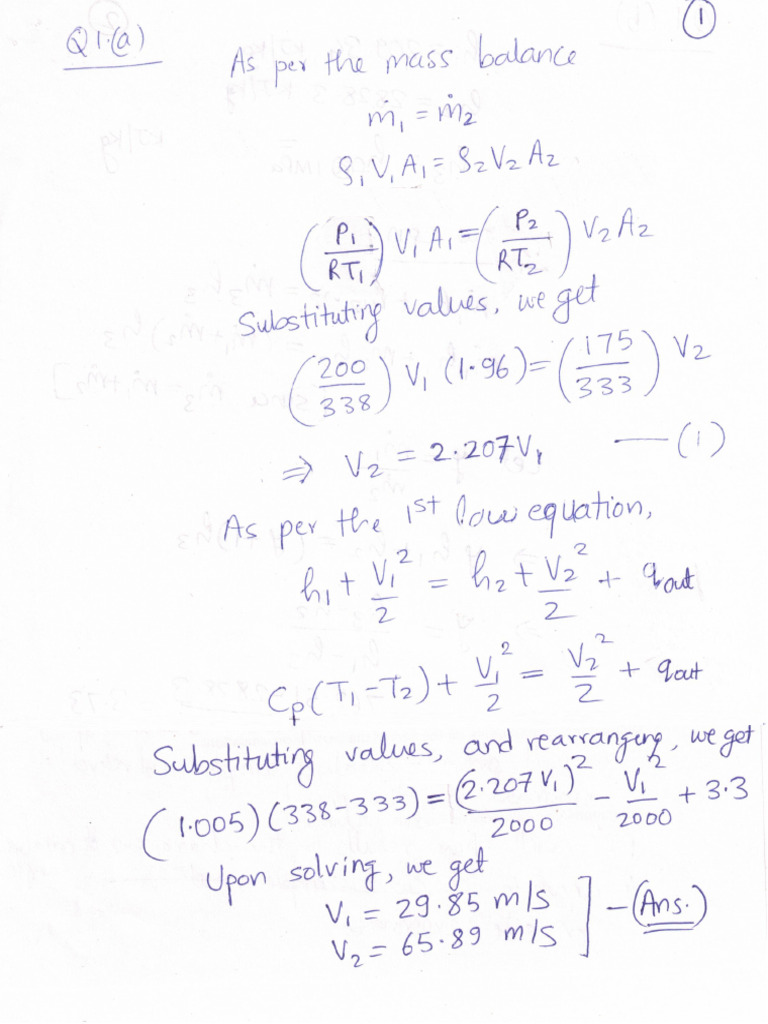 1
Q1.(a)
As per the mass balance
ṁ₁ = ṁ₂
ρ₁V₁A₁ = ρ₂V₂A₂
(P₁/RT₁) V₁A₁ = (P₂/RT₂) V₂A₂
Substituting values, we get
(200/338) V₁ (1.96) = (175/333) V₂
⇒ V₂ = 2.207V₁ — (1)
As per the 1st law equation,
h₁ + V₁²/2 = h₂ + V₂²/2 + qout
Cp(T₁-T₂) + V₁²/2 = V₂²/2 + qout
Substituting values, and rearranging, we get
(1.005)(338-333) = (2.207V₁)²/2000 - V₁²/2000 + 3.3
Upon solving, we get
V₁ = 29.85 m/s
V₂ = 65.89 m/s ] — (Ans.)